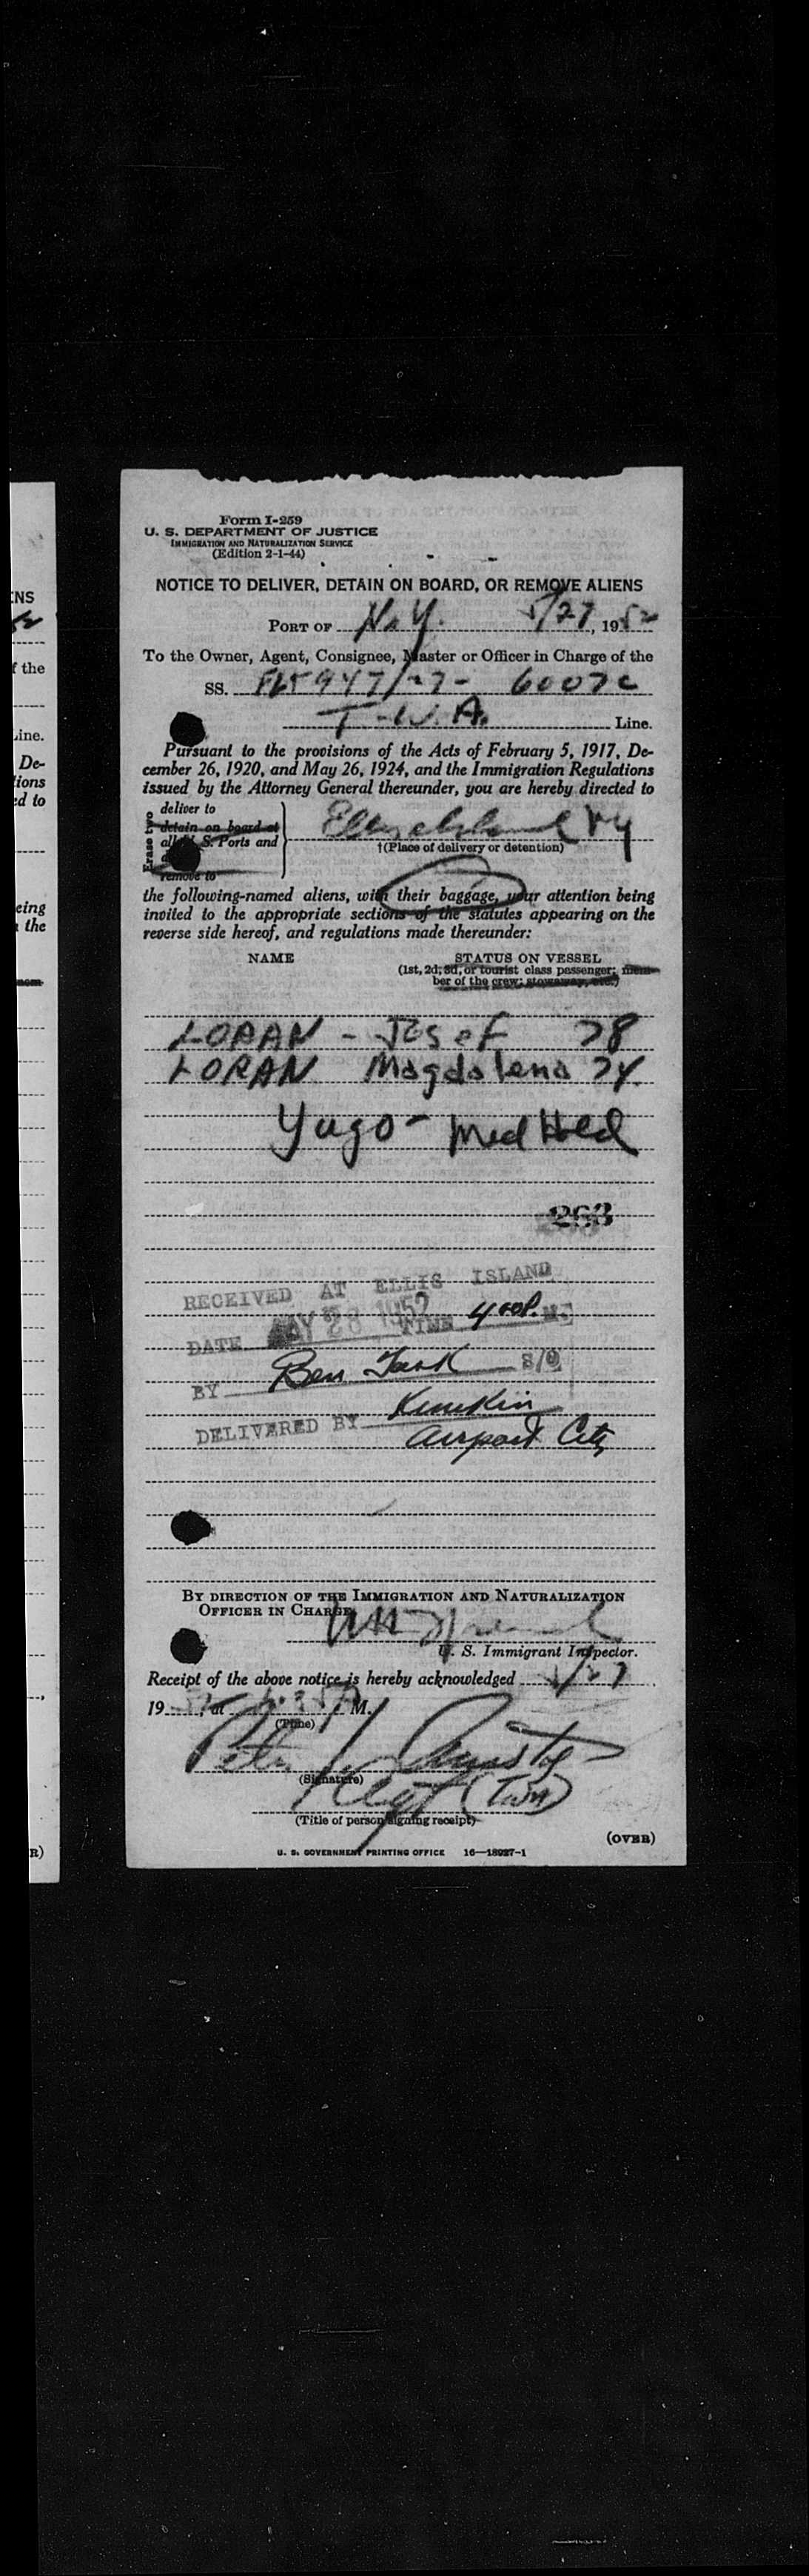 Form I-259
U. S. DEPARTMENT OF JUSTICE
IMMIGRATION AND NATURALIZATION SERVICE
(Edition 2-1-44)
NOTICE TO DELIVER, DETAIN ON BOARD, OR REMOVE ALIENS
PORT OF N.Y. 5/27, 1952
To the Owner, Agent, Consignee, Master or Officer in Charge of the
SS. 947/27- 6007c
T.W.A. Line.
Pursuant to the provisions of the Acts of February 5, 1917, De-
cember 26, 1920, and May 26, 1924, and the Immigration Regulations
issued by the Attorney General thereunder, you are hereby directed to
Erase two
deliver to
detain on board at
all U. S. Ports and
remove to
Ellis Island NY
†(Place of delivery or detention)
the following-named aliens, with their baggage, your attention being
invited to the appropriate sections of the statutes appearing on the
reverse side hereof, and regulations made thereunder:
NAME STATUS ON VESSEL
(1st, 2d, 3d, or tourist class passenger; mem-
ber of the crew; stowaway, etc.)
LORAN - Josef 28
LORAN Magdalena 24
Yugo - Med Held
263
RECEIVED AT ELLIS ISLAND
DATE MAY 28 1952 TIME 4 00 P. M.
BY Ben S/O
DELIVERED BY
Airport City
BY DIRECTION OF THE IMMIGRATION AND NATURALIZATION
OFFICER IN CHARGE
U. S. Immigrant Inspector.
Receipt of the above notice is hereby acknowledged 5/27
1952, at M.
(Time)
Peter
(Signature)
Agt (TWA)
(Title of person signing receipt)
(OVER)
U. S. GOVERNMENT PRINTING OFFICE 16—18027-1
ENS
f the
Line.
De-
tions
ed to
eing
the
mem-
R)